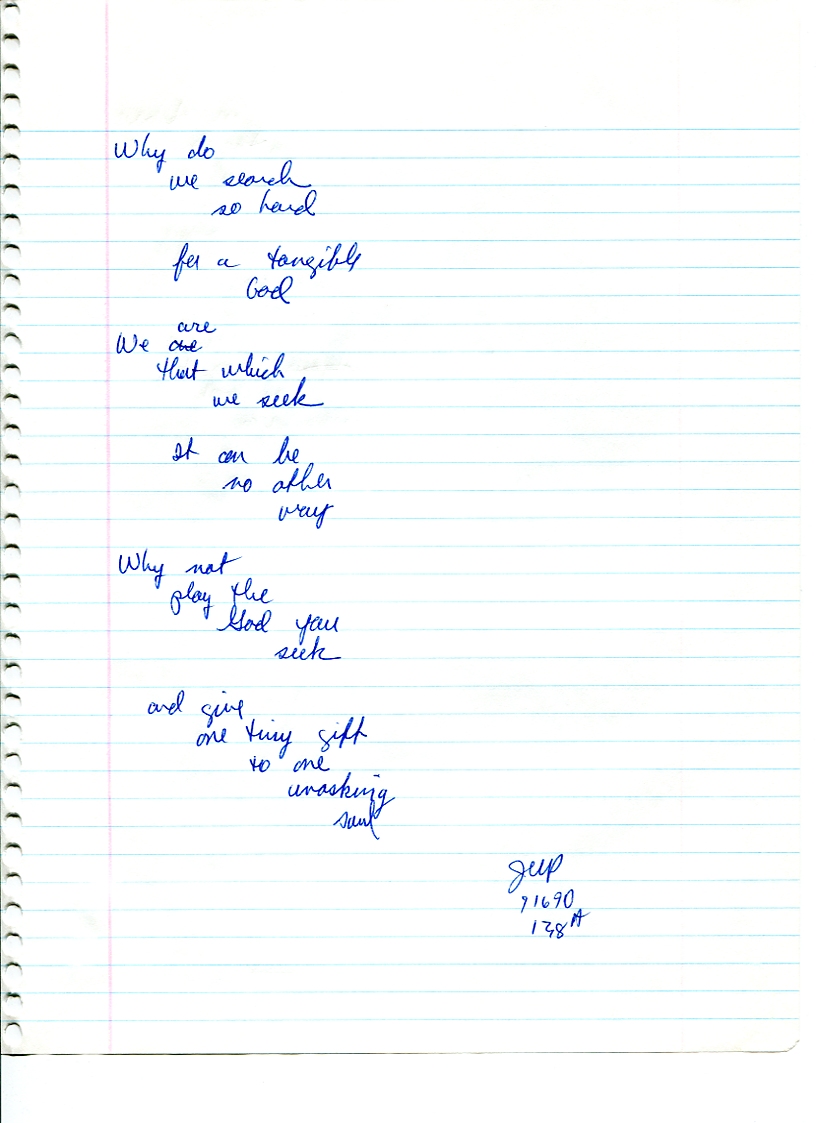 Why do
we search
so hard
for a tangible
God
are
We are
that which
we seek
It can be
no other
way
Why not
play the
God you
seek
and give
one tiny gift
to one
unasking
soul
91690
138A